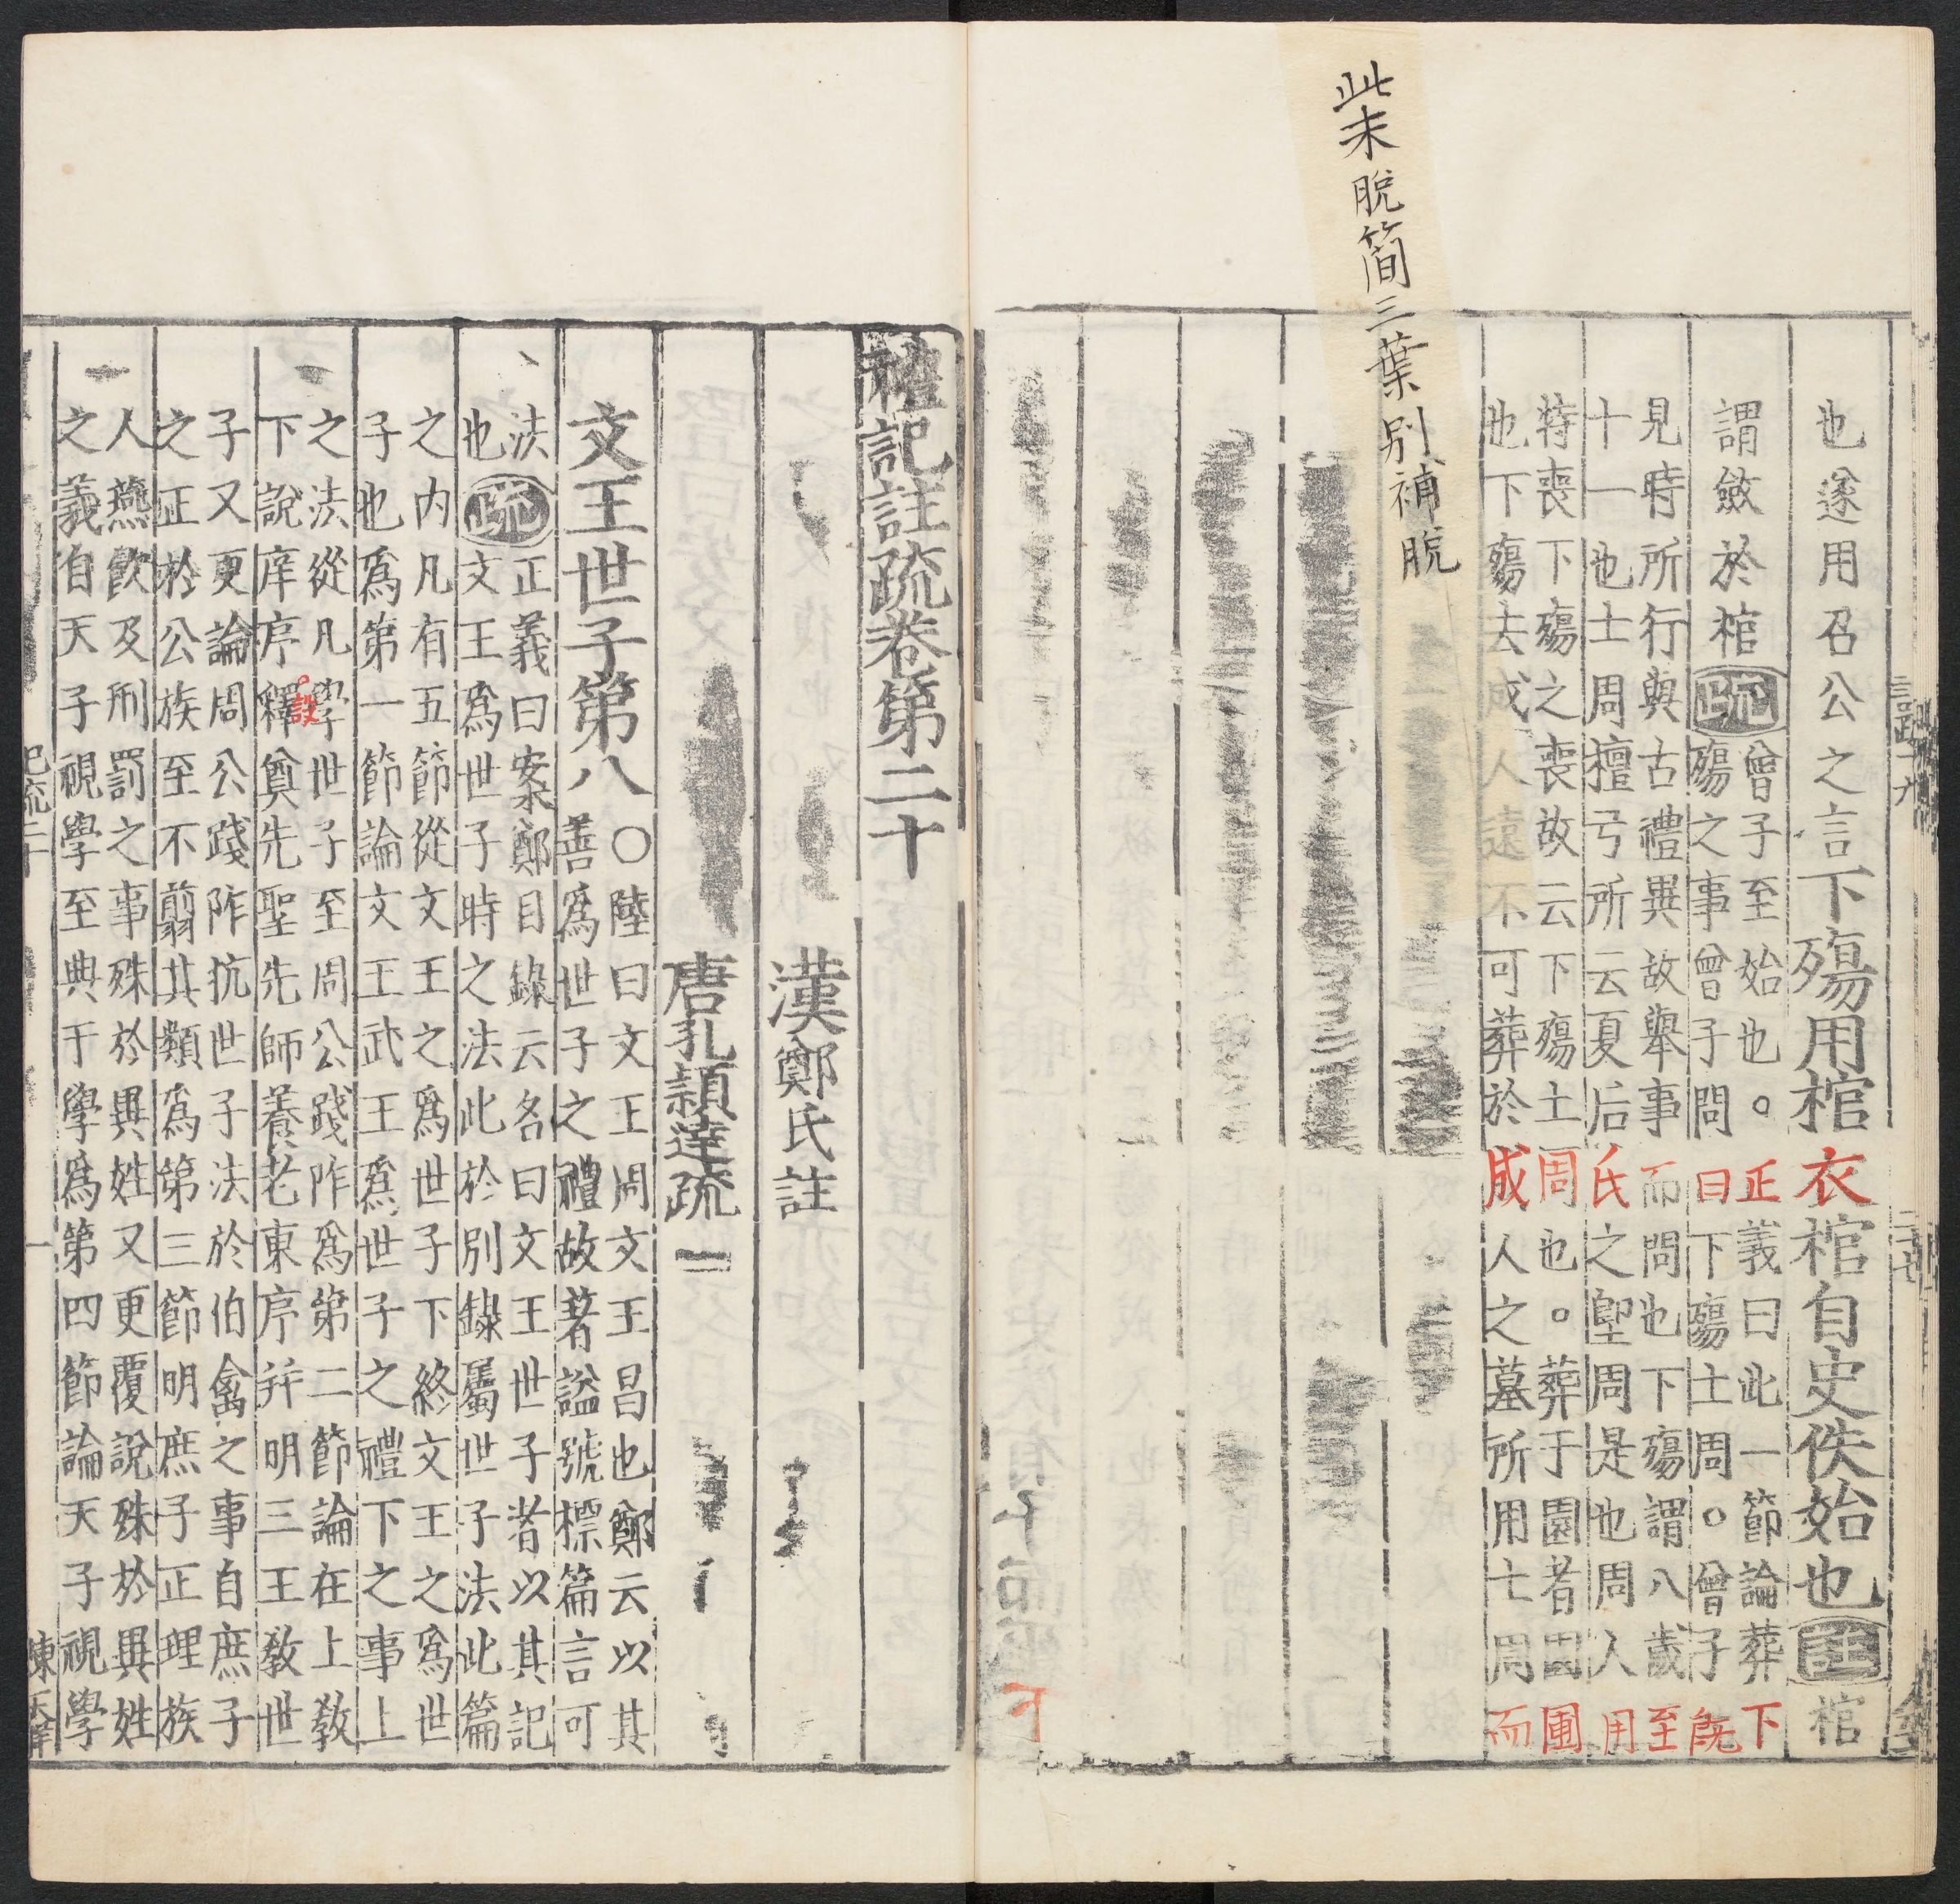 此末脫簡三葉別補脫
也遂用召公之言下殤用棺衣棺自史佚始也註棺
謂斂於棺疏曾子至始也。正義曰此一節論葬下
殤之事曾子問曰下殤土周。曾子既
見時所行與古禮異故舉事而問也下殤謂八歲至
十一也士周檀弓所云夏后氏之堲周是也周人用
特喪下殤之喪故云下殤土周也。葬于園者園圃
也下殤去成人遠不可葬於成人之墓所用土周而
禮記註疏卷第二十
漢鄭氏註
唐孔頴達疏
文王世子第八○陸曰文王周文王昌也鄭云以其
善爲世子之禮故著謚號標篇言可
法
也疏正義曰案鄭目錄云名曰文王世子者以其記
文王爲世子時之法此於別錄屬世子法此篇
之內凡有五節從文王之爲世子下終文王之爲世
子也爲第一節論文王武王爲世子之禮下之事上
之法從凡學世子至周公踐阼爲第二節論在上敎
下說庠序釋設奠先聖先師養老東序并明三王敎世
子又更論周公踐阼抗世子法於伯禽之事自庶子
之正於公族至不翦其類爲第三節明庶子正理族
人燕飲及刑罰之事殊於異姓又更覆說殊於異姓
之義自天子視學至典于學爲第四節論天子視學